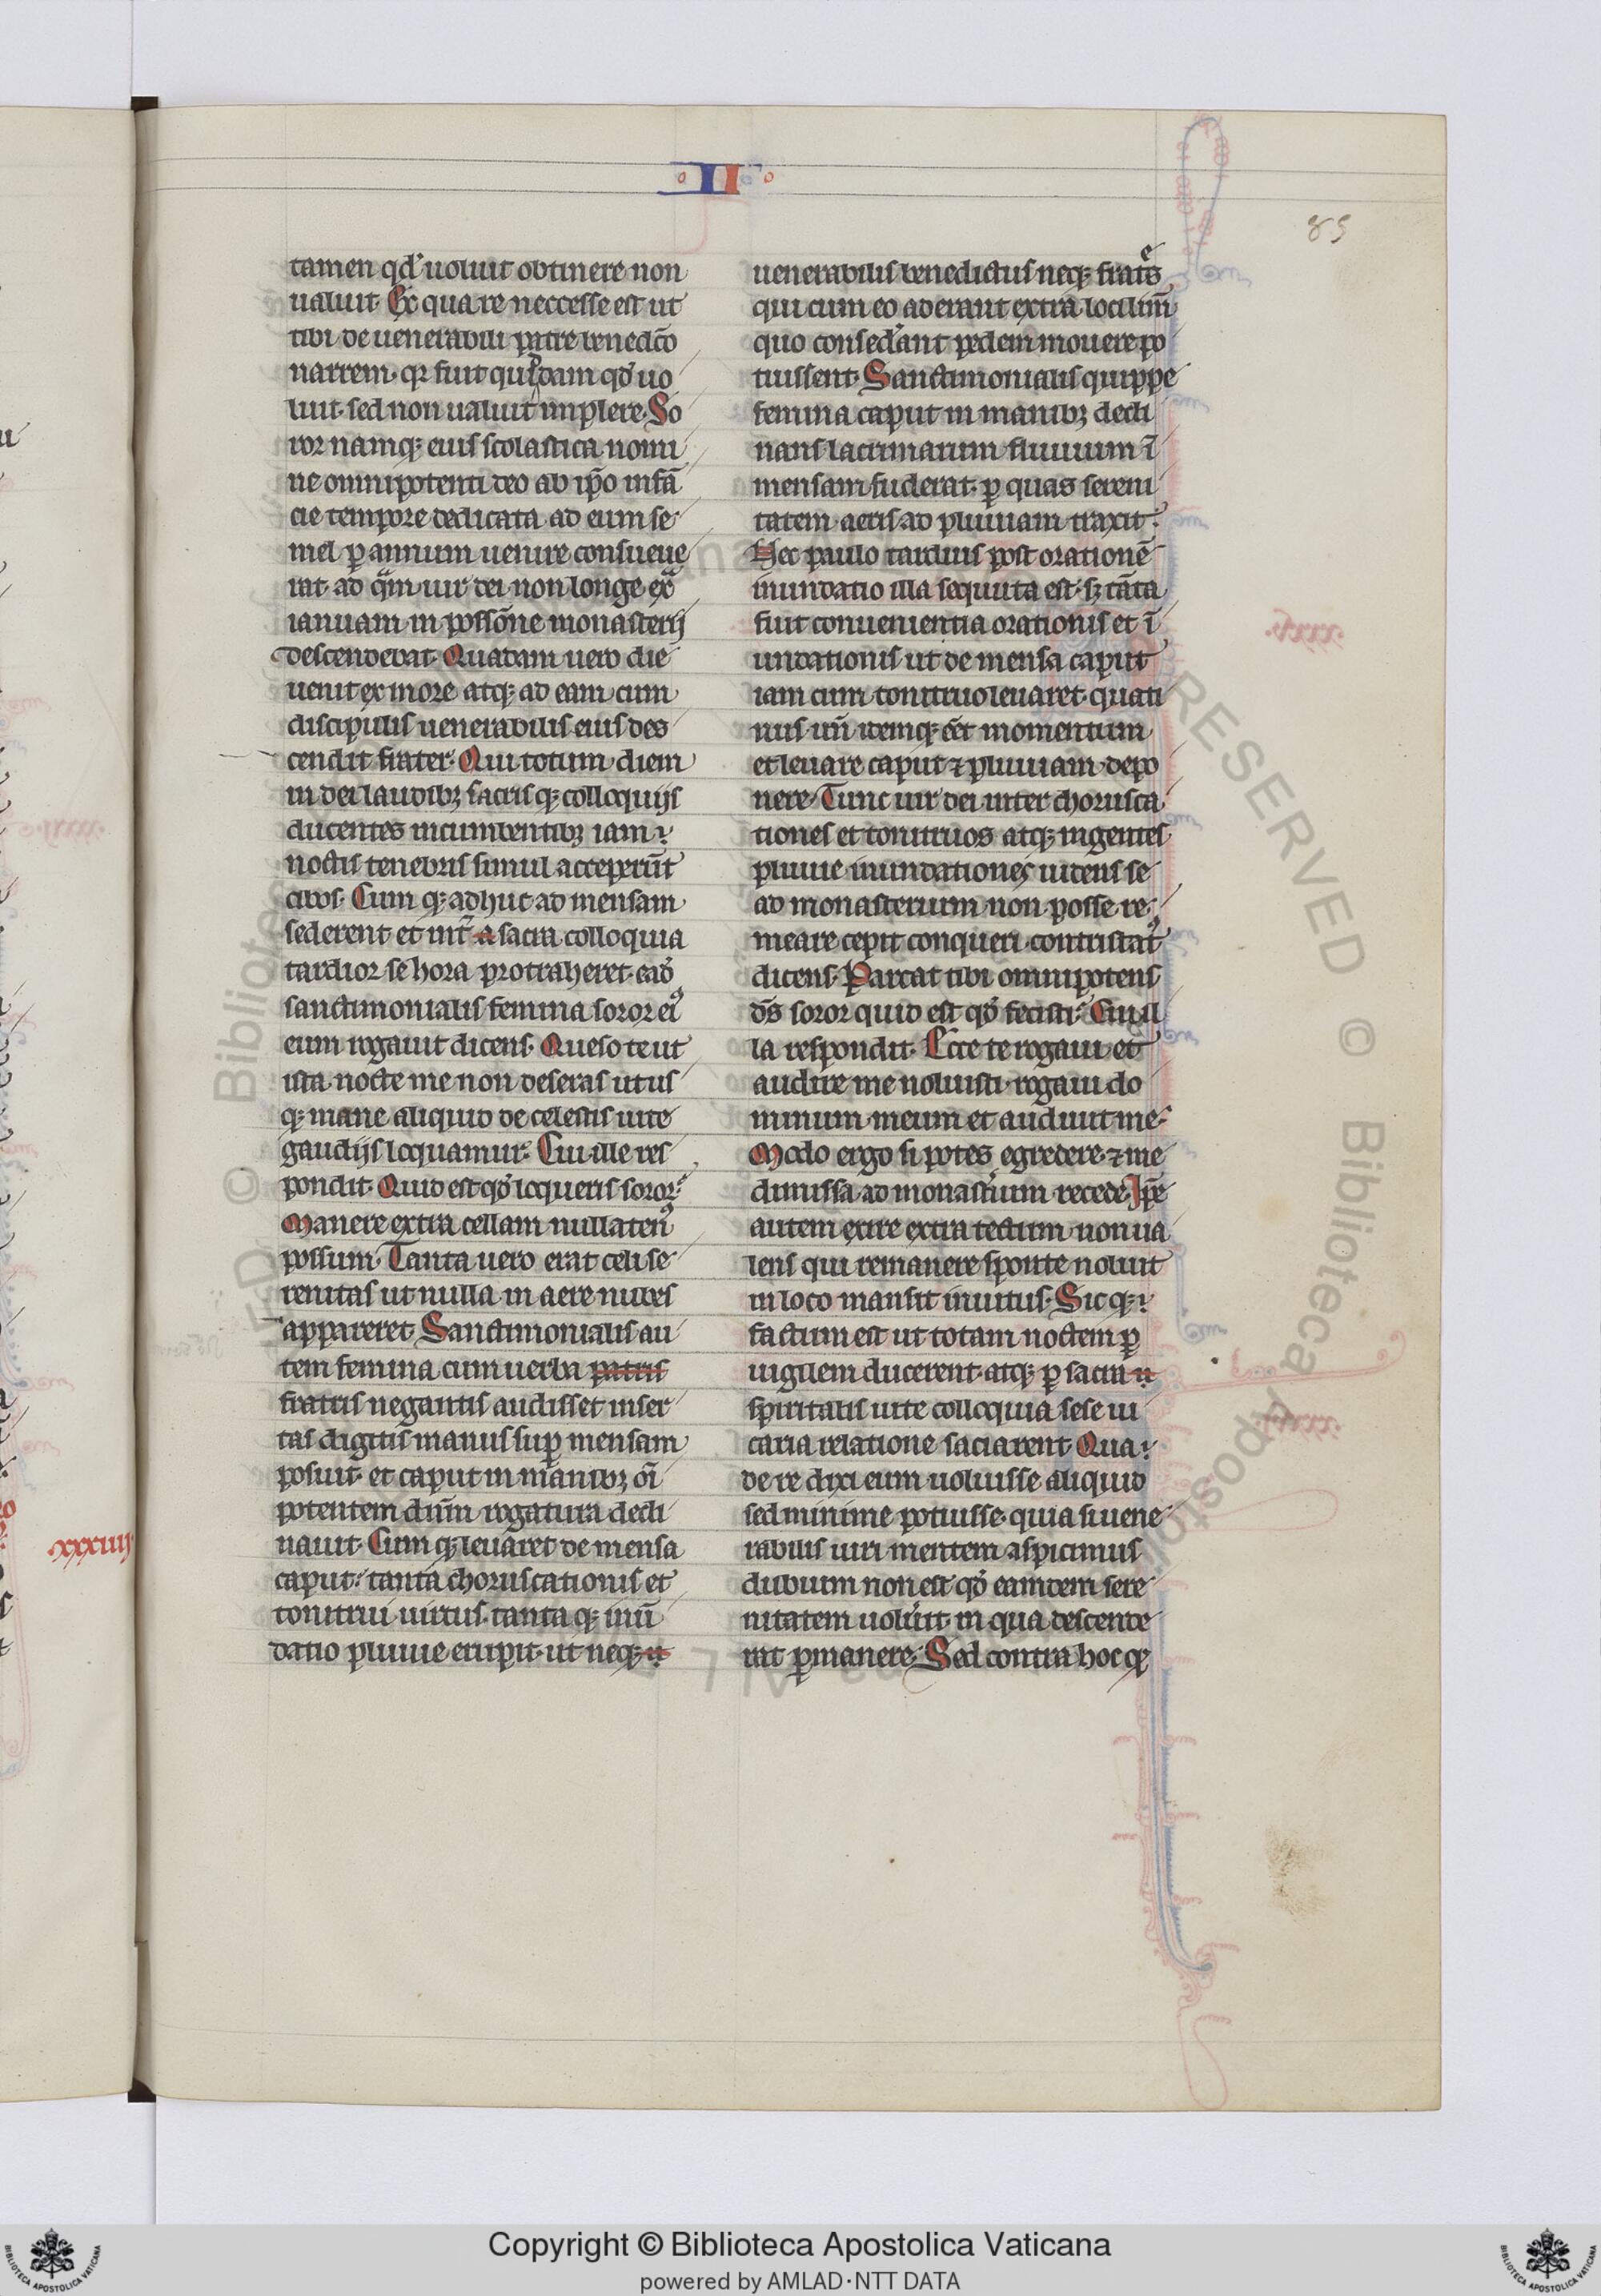 II
85
tamen qd̓ uoluit obtinere non
ualuit. Ex qua re neccesse est ut
tibi de uenerabili patre bened̃co
narrem. qꝛ fuit quiddam qđ uo
luit. sed non ualuit implere. So
ror namqꝫ eius scolastica nomi
ne omnipotenti deo ab ip̃o infã
cie tempore dedicata ad eum se
mel ꝑ annum uenire consueue
rat. ad q̃m uir dei non longe exͣ
ianuam in possõne monasterij
descendebat. Quadam uero die
uenit ex more atqꝫ ad eam cum
discipulis uenerabilis eius des
cendit frater. Qui totum diem
in dei laudibꝫ sacris qꝫ colloquijs
ducentes incumbentibꝫ iam
noctis tenebris simul acceperũt
cibos. Cum qꝫ adhuc ad mensam
sederent et int̓ a sacra colloquia
tardior se hora protraheret. eađ
sanctimonialis femina soror eiꝰ
eum rogauit dicens. Queso te ut
ista nocte me non deseras ut us
qꝫ mane aliquid de celestis uite
gaudijs loquamur. Cui ille res
pondit. Quid est qđ loqueris soror.
Manere extra cellam nullatenꝰ
possum. Tanta uero erat celi se
renitas ut nulla in aere nubes
appareret. Sanctimonialis au
tem femina cum uerba patris
fratris negantis audisset inser
tas digitis manus suꝑ mensam
posuit. et caput in manibꝫ oĩ
potentem dñm rogatura decli
nauit. Cum qꝫ leuaret de mensa
caput. tanta choruscationis et
tonitrui uirtus. tanta qꝫ inũ
datio pluuie erupit. ut neqꝫ
uenerabilis benedictus neqꝫ frat̓es
qui cum eo aderant extra loci lim̃
quo consed̓ant pedem mouere po
tuissent. Sanctimonialis quippe
femina caput in manibꝫ decli
nans lacrimarum fluuium ĩ
mensam fuderat. ꝑ quas sereni
tatem aeris ad pluuiam traxit.
Nec paulo tardius post orationẽ
inundatio illa sequuta est. sꝫ tãta
fuit conuenientia orationis et ĩ
undationis ut de mensa caput
iam cum tonitruo leuaret. quati
nus uñ idemqꝫ eẽt momentum
et leuare caput ⁊ pluuiam depo
nere. Tunc uir dei inter chorusca
tiones et tonitruos atqꝫ ingentes
pluuie inundationes uidens se
ad monasterium non posse re
meare cepit conqueri contristatꝰ
dicens. Parcat tibi omnipotens
d̃s soror quid est qđ fecisti. Cui il
la respondit. Ecce te rogaui et
audire me noluisti. rogaui do
minum meum et audiuit me.
Modo ergo si potes egredere. ⁊ me
dimissa ad monast̓ium recede. Ip̃e
autem exire extra tectum non ua
lens qui remanere sponte noluit
in loco mansit inuitus. Sic qꝫ
factum est ut totam noctem ꝑ
uigilem ducerent. atqꝫ ꝑ sacra
spiritalis uite colloquia sese ui
caria relatione saciarent. Qua
de re dixi eum uoluisse aliquid
sed minime potuisse. quia si uene
rabilis uiri mentem aspicimus
dubium non est qđ eamdem sere
nitatem uolu̓it. in qua descende
rat ꝑmanere. Sed contra hoc qđ
.xxxiiij.
Copyright © Biblioteca Apostolica Vaticana
powered by AMLAD·NTT DATA